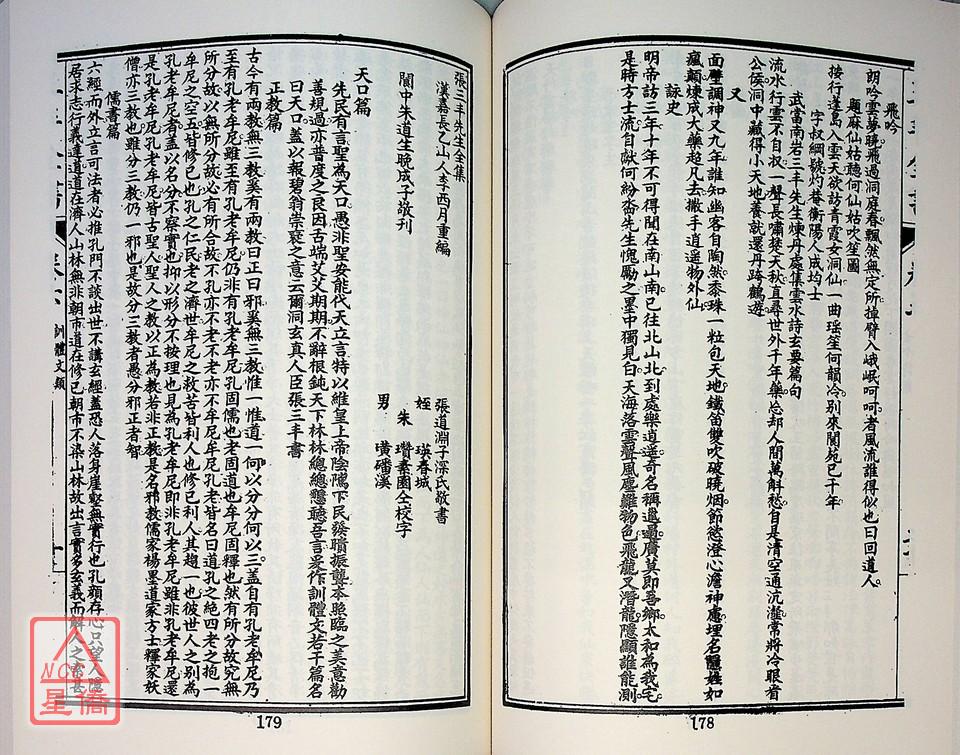 飛吟
朗吟雲夢曉飛過洞庭春飄然無定所掉臂入峨岷呵呵者風流誰得似也曰回道人
題麻仙姑聽何仙姑吹笙圖
接行蓬島入雲天欲訪青霞女洞仙一曲瑶笙何韻冷别來閬苑已千年
字叔綱號灼菴衡陽人成均士
武當南岩三丰先生煉丹處集雲水詩玄要篇句
流水行雲不自叔一聲長嘯楚天秋直尋世外千年藥忘却人間萬斛愁自是清空通沆瀣常將冷眼看
公侯洞中藏得小天地養就還丹跨鶴遊
又
面壁調神又九年誰知幽客自陶然黍珠一粒包天地鐵笛雙吹破曉烟節慾澄心澹神慮埋名隱姓如
瘋顛煉成大藥超凡去撒手逍遥物外仙
詠史
明帝訪三年十年不可得聞在南山南已往北山北到處樂道遥奇名稱邋遢廣莫即吾鄉太和為我宅
是時方士流自獻何紛沓先生愧勵之墨中獨見白天海落雲聲風塵難物色飛龍又潛龍隱顯誰能測
178
張三丰先生全集
漢嘉長乙山人李西月重編
閬中朱道生晚成子敬刊
張道淵子深氏敬書
姪 瑛春城
朱 瓚素園仝校字
男 璜磻溪
天口篇
先民有言聖為天口愚非聖安能代天立言特以維皇上帝陰隲下民發聵振聾本照臨之美意勸
善規過亦普度之良因舌端艾艾期期不辭根鈍天下林林總總戇聽吾言爰作訓體文若干篇名
曰天口盖以報碧翁崇褒之意云爾洞玄真人臣張三丰書
正教篇
古今有兩教無三教奚有兩教曰正曰邪奚無三教惟一惟道一何以分分何以三盖自有孔老牟尼乃
至有孔老牟尼雖至有孔老牟尼仍非有孔老牟尼孔固儒也老固道也牟尼固釋也然有所分故究無
所分故以無所分故必有所合故不孔亦不老不老亦不牟尼牟尼孔老皆名曰道孔之絶四老之抱一
牟尼之空五皆修已也孔之仁民老之濟世牟尼之救苦皆利人也修已利人其趨一也彼世人之别為
孔老牟尼者盖以名分不察實也抑以形分不按理也見為孔老牟尼即非孔老牟尼雖非孔老牟尼還
是孔老牟尼孔老牟尼皆古聖人聖人之教以正為教若非正教是名邪教儒家楊墨道家方士釋家妖
僧亦三教也雖分三教仍一邪也是故分三教者愚分邪正者智
儒書篇
六經而外立言可法者必推孔門不談出世不講玄經盖恐人落身崖壑無實行也孔顔存心只望人隱
居求志行義達道道在濟人山林無非朝市道在修已朝市不染山林故出言實多玄義而解人之索甚
訓體文類
179
NCC
星僑